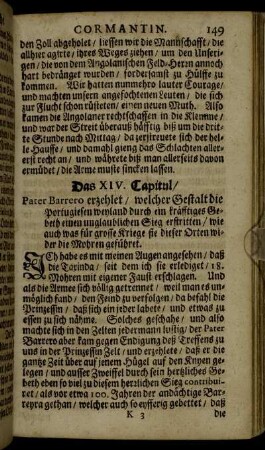 CORMANTIN. 149
den Zoll abgeholet / liessen wir die Mannschafft / die
allhier agirte / ihres Weges ziehen / um den Unseri-
gen / die von dem Angolanischen Feld-Herrn annoch
hart bedränget wurden / fordersamst zu Hülffe zu
kommen. Wir hatten nunmehro lauter Courage /
und machten unsern angefochtenen Leuten / die sich
zur Flucht schon rüsteten / einen neuen Muth. Also
kamen die Angolaner rechtschaffen in die Klemme /
und war der Streit überauß häfftig biß um die drit-
te Stunde nach Mittag / da zerstreuete sich der hel-
le Hauffe / und damahl gieng das Schlachten aller-
erst recht an / und währete biß man allerseits davon
ermüdet / die Arme muste sincken lassen.
Das XIV. Capitul /
Pater Barrero erzehlet / welcher Gestalt die
Portugiesen weyland durch ein kräfftiges Ge-
beth einen unglaublichen Sieg erstritten / wie
auch was für große Kriege sie dieser Orten wi-
der die Mohren geführet.
ICh habe es mit meinen Augen angesehen / daß
die Tarinda / seit dem ich sie erlediget / 18.
Mohren mit eigener Faust erschlagen. Und
als die Armee sich völlig getrennet / weil man es un-
möglich fand / den Feind zu verfolgen / da befahl die
Prinzessin / daß sich ein jeder labete / und etwas zu
essen zu sich nähme. Solches geschahe / und also
machte sich in den Zelten jedermann lustig / der Pater
Barrero aber kam gegen Endigung deß Treffens zu
uns in der Prinzessin Zelt / und erzehlete / daß er die
gantze Zeit über auf jenem Hügel auf den Knyen gele-
gen / und ausser Zweiffel durch sein hertzliches Ge-
beth eben so viel zu diesem herrlichen Sieg contribui-
ret / als vor etwa 100. Jahren der andächtige Bar-
reyra gethan / welcher auch so eyfferig gebettet / daß
K 3 die